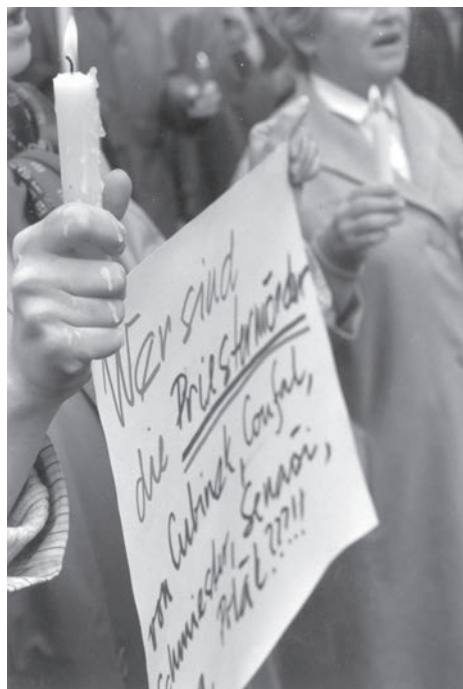 Wer sind
die Priestermörder
von Cubinek, Coufal,
Schmieder,
Polák???!!